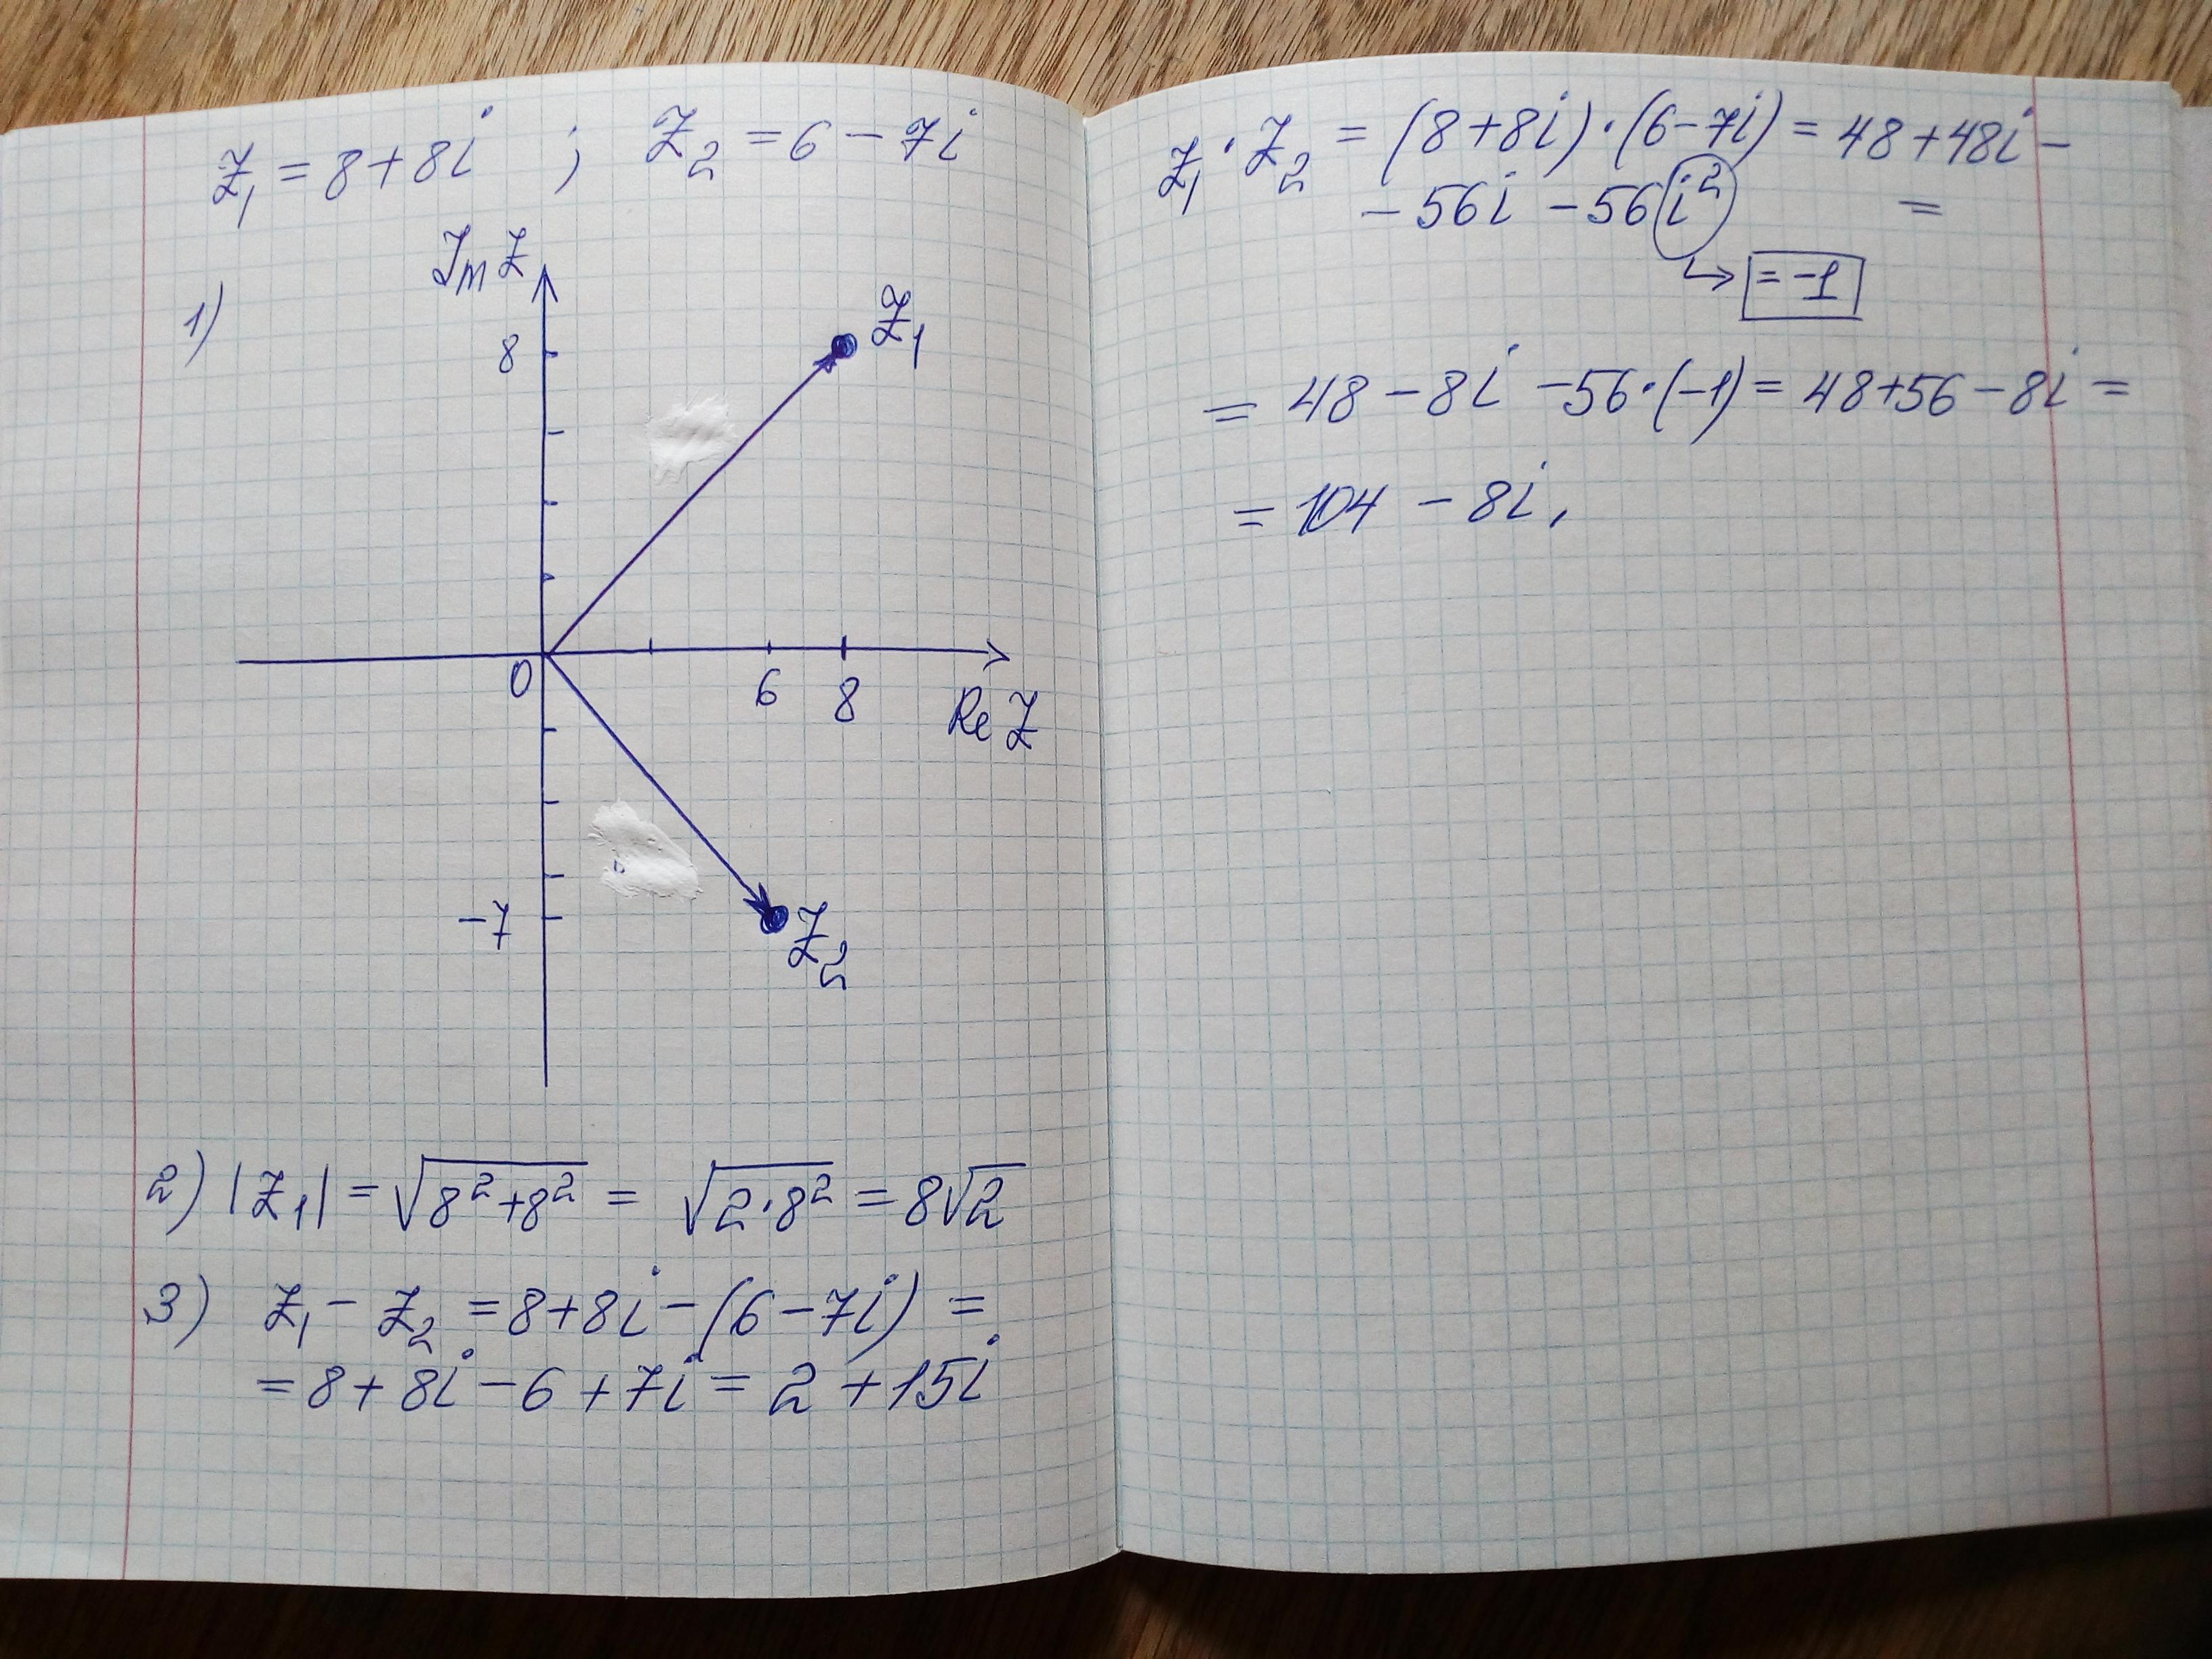 z₁ = 8 + 8i ; z₂ = 6 – 7i
1)
Im z
8
z₁
0
6 8
Re z
–7
z₂
2) |z₁| = √(8² + 8²) = √(2·8²) = 8√2
3) z₁ – z₂ = 8 + 8i – (6 – 7i) =
= 8 + 8i – 6 + 7i = 2 + 15i
z₁ · z₂ = (8 + 8i) · (6 – 7i) = 48 + 48i –
– 56i – 56i² =
= –1
= 48 – 8i – 56·(–1) = 48 + 56 – 8i =
= 104 – 8i,